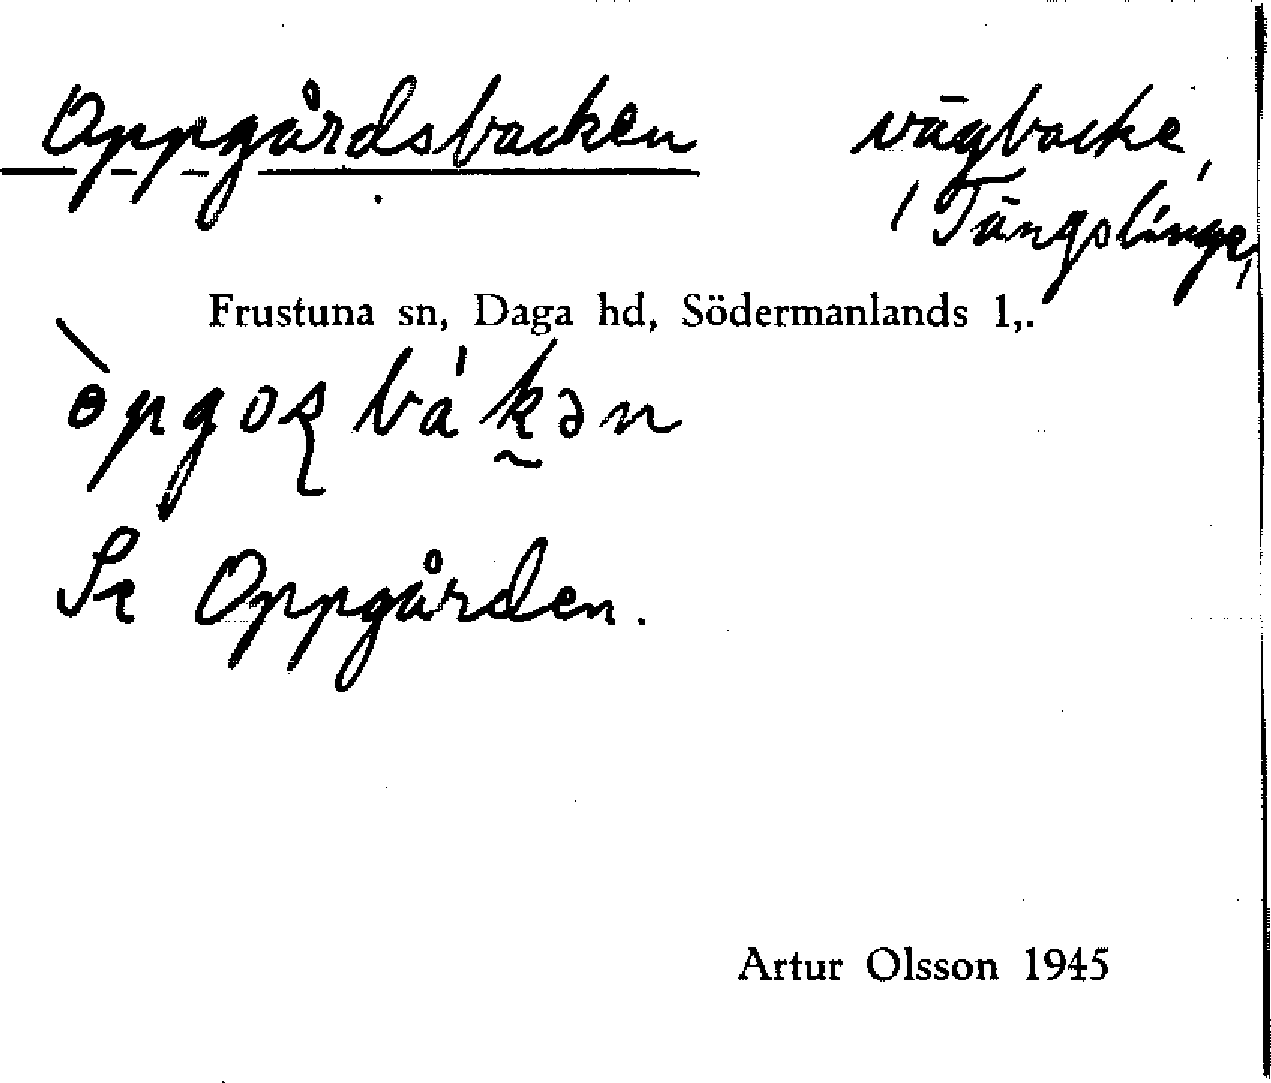 Oppgårdsbacken vägbacke,
i Tängslinge,
Frustuna sn, Daga hd, Södermanlands l,.
Se Oppgården.
Artur Olsson 1945